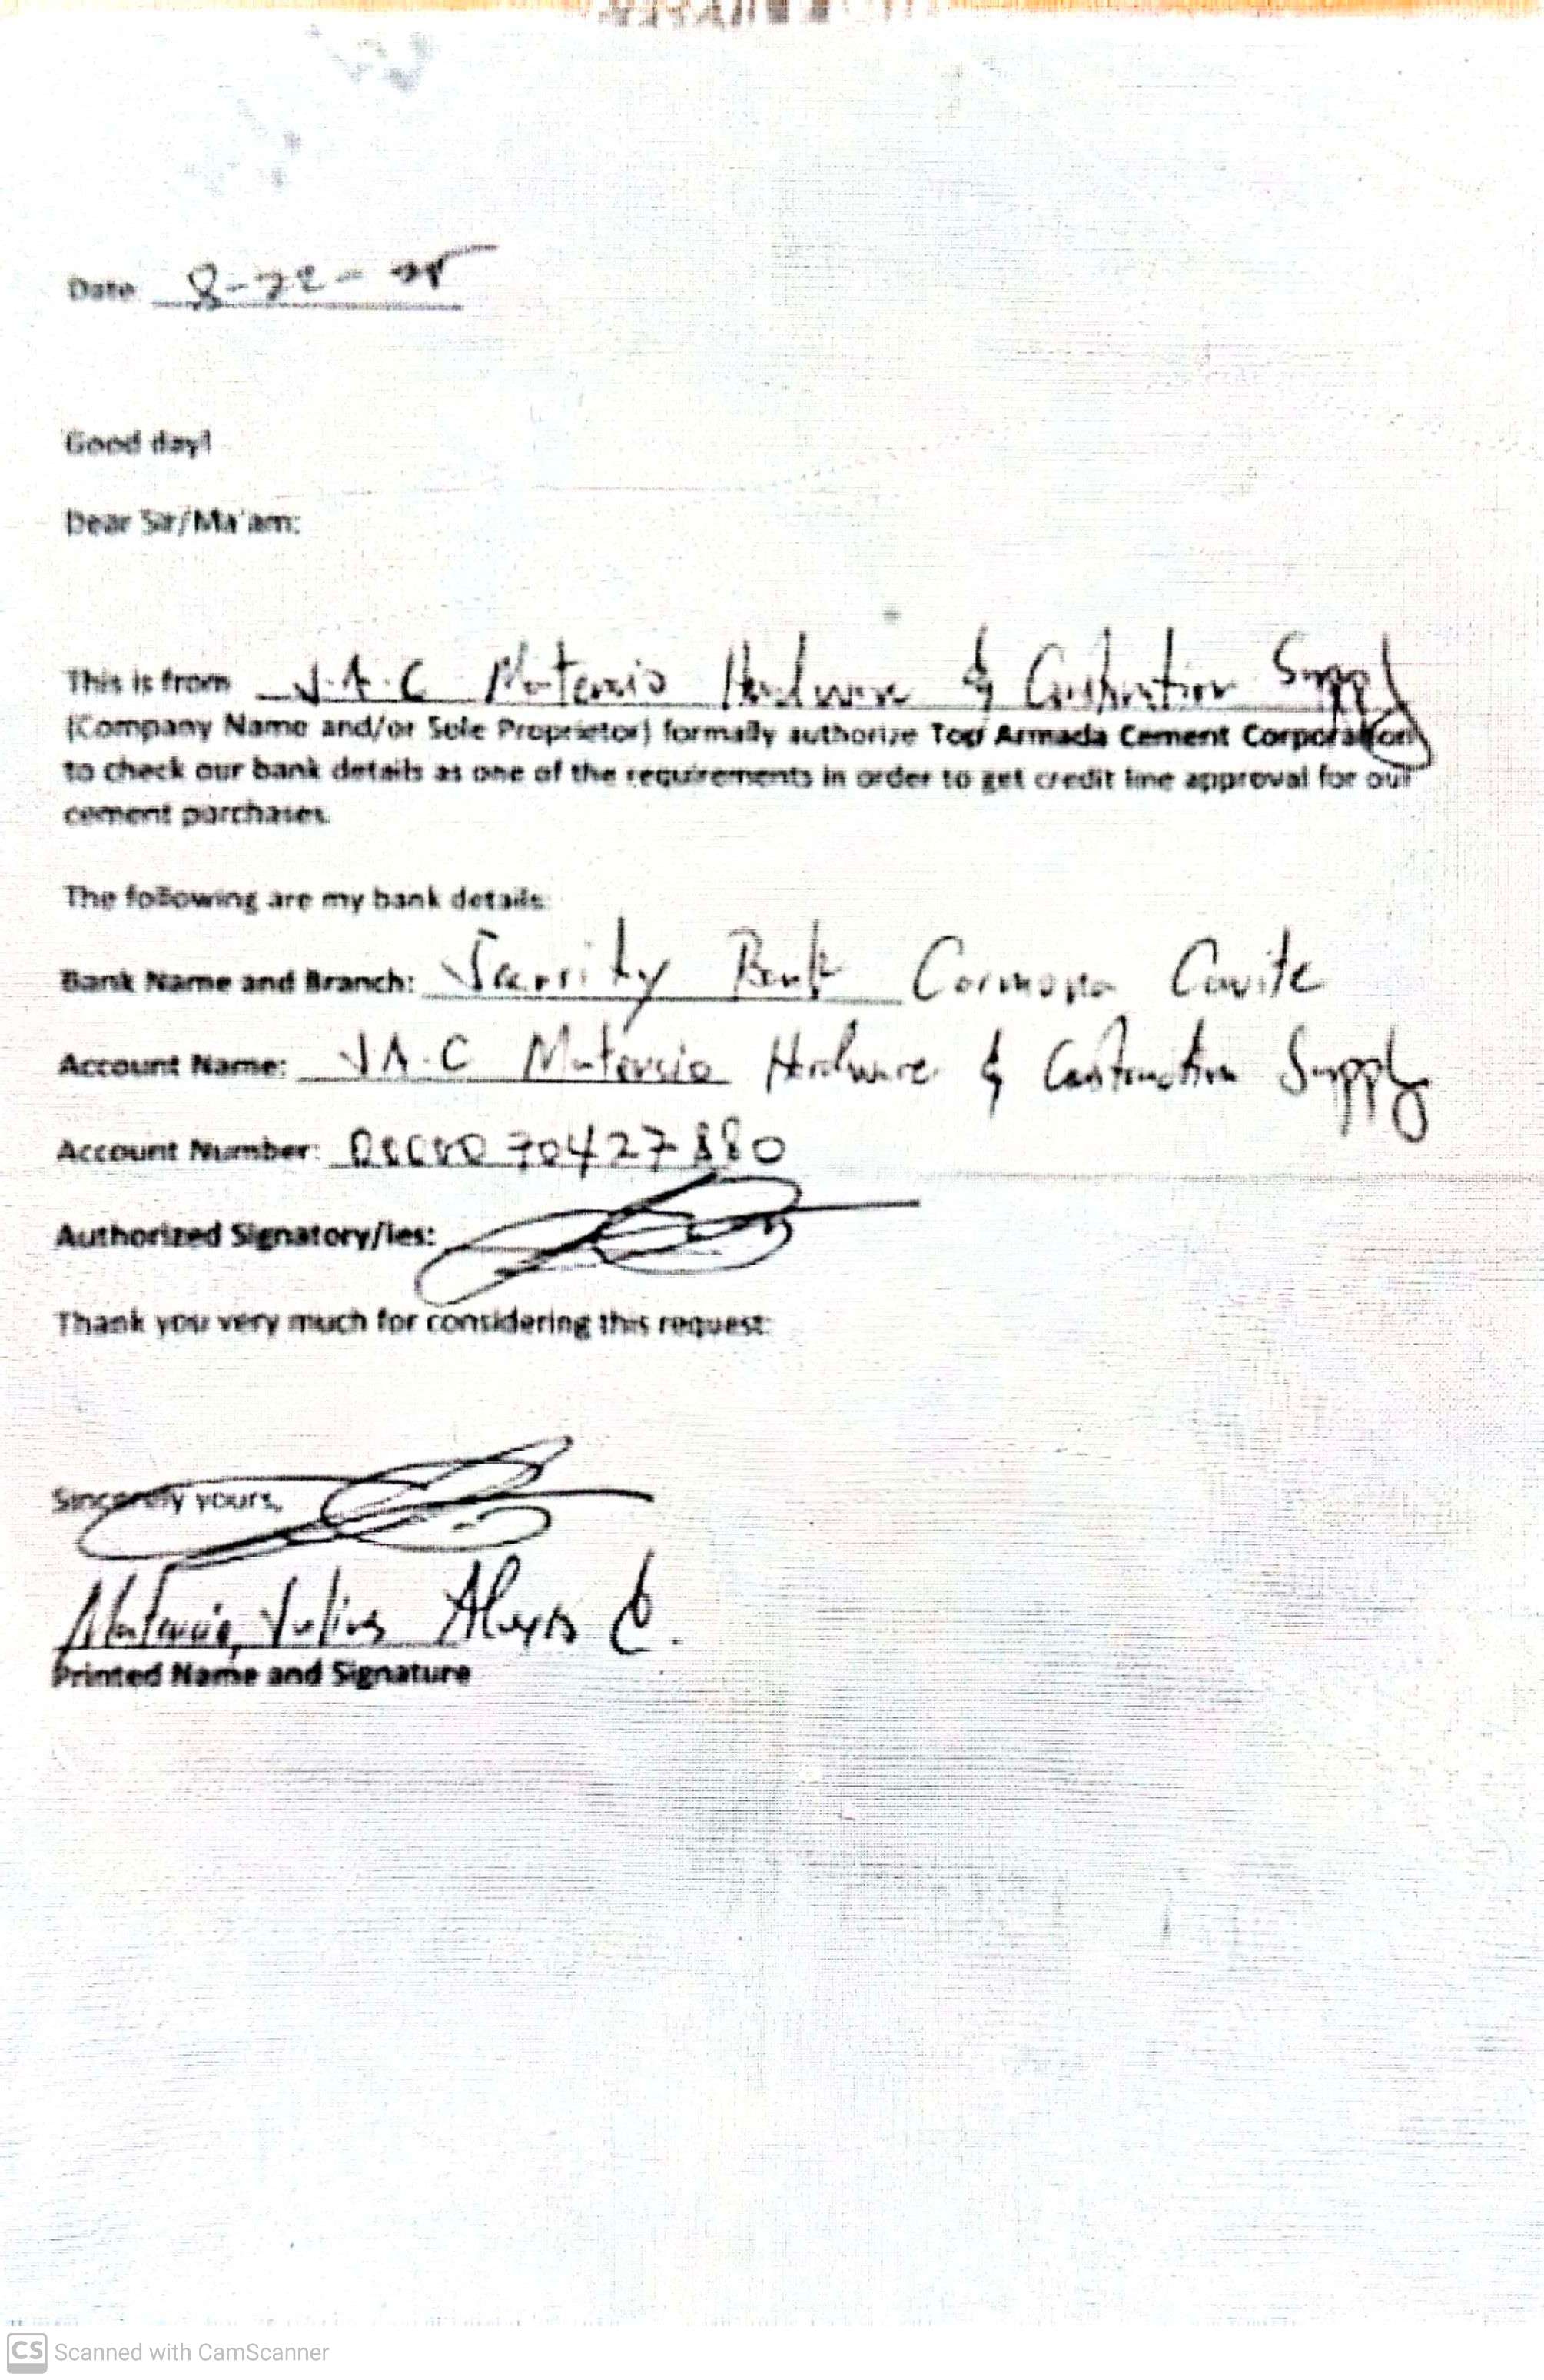 Date 8-22-25
Good day!
Dear Sir/Ma'am:
This is from J.A.C Matercio Hardware & Construction Supply
(Company Name and/or Sole Proprietor) formally authorize Armada Cement Corporation
to check our bank details as one of the requirements in order to get credit line approval for our
cement purchases.
The following are my bank details:
Bank Name and Branch: Security Bank Carmona Cavite
Account Name: JA.C Matercio Hardware & Construction Supply
Account Number:
Authorized Signatory/ies:
Thank you very much for considering this request.
Sincerely yours,
Matercio, Julius Alexis C.
Printed Name and Signature
CS Scanned with CamScanner